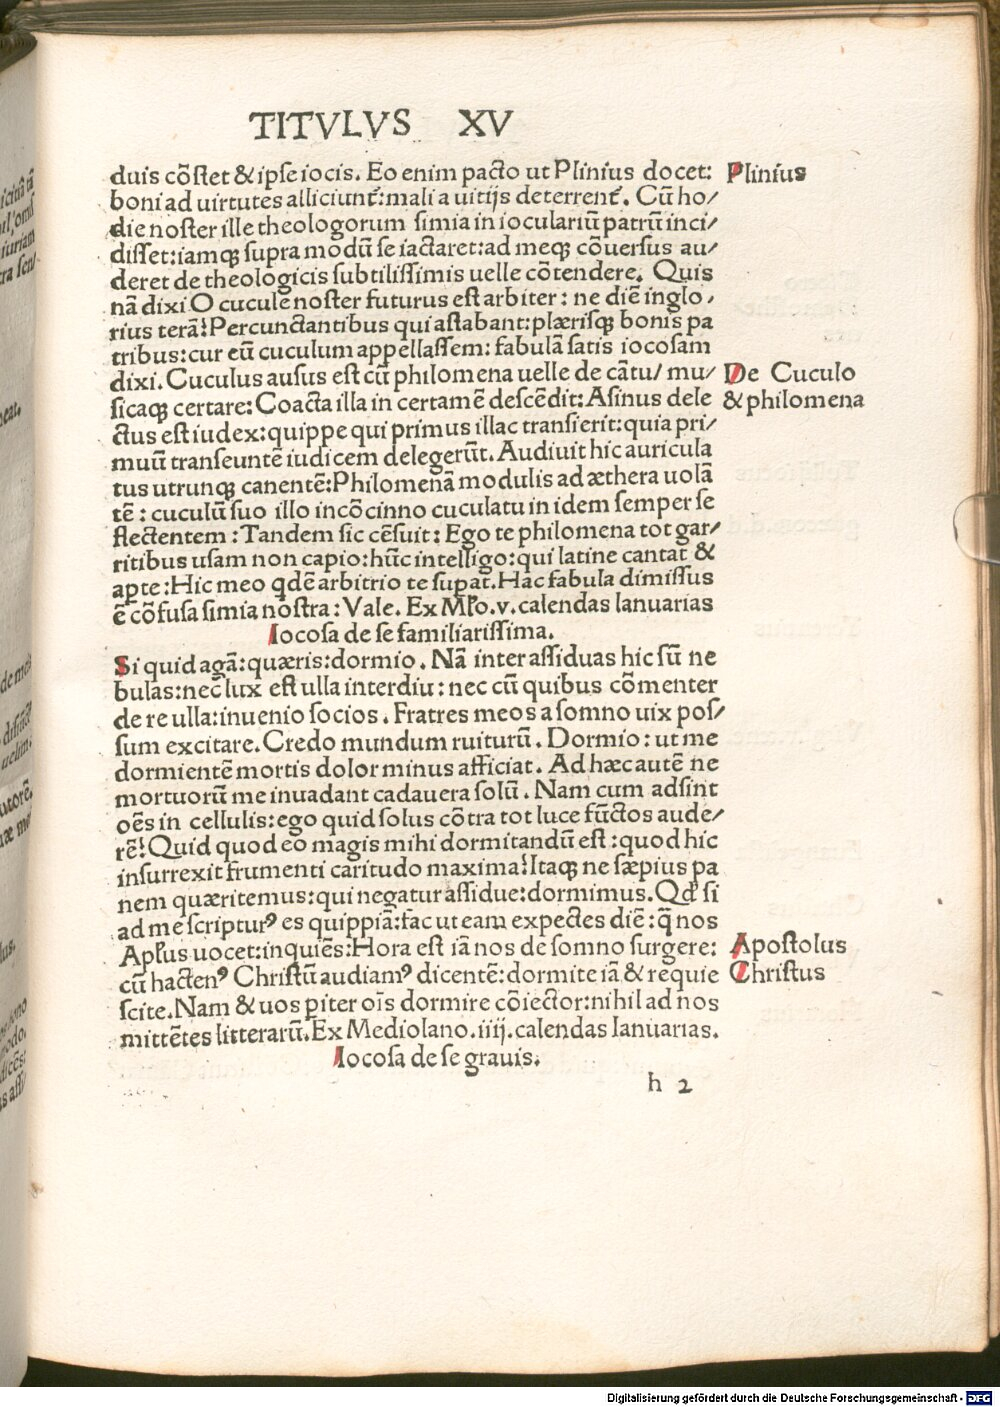 TITVLVS XV
duis cõſtet & ipſe iocis. Eo enim pacto ut Plinius docet: Plinius
boni ad uirtutes alliciunt̃: mali a uitijs deterrent̃. Cũ ho/
die noſter ille theologorum ſimia in iocularium̃ patrũ inci/
diſſet: iamqꝫ ſupra modũ ſe iactaret: ad meqꝫ cõuerſus au/
deret de theologicis ſubtiliſſimis uelle cõtendere. Quis
nã dixi O cucule noſter futurus eſt arbiter: ne diẽ inglo/
rius terã? Percunctantibus qui aſtabant: plæriſqꝫ bonis pa
tribus: cur eũ cuculum appellaſſem: fabulã ſatis iocoſam
dixi. Cuculus auſus eſt cũ philomena uelle de cãtu/ mu/ De Cuculo
ſicaqꝫ certare: Coacta illa in certamẽ deſcẽdit: Aſinus dele & philomena
ctus eſt iudex: quippe qui primus illac tranſierit: quia pri/
muũ tranſeuntẽ iudicem delegerũt. Audiuit hic auricula
tus utrunqꝫ canentẽ: Philomenã modulis ad æthera uolã
tẽ: cuculũ ſuo illo incõcinno cuculatu in idem ſemper ſe
flectentem: Tandem ſic cẽſuit: Ego te philomena tot gar/
ritibus uſam non capio: hũc intelligo: qui latine cantat &
apte: Hic meo qdẽ arbitrio te ſupat. Hac fabula dimiſſus
ẽ cõfuſa ſimia noſtra: Vale. Ex Mlo. v. calendas Ianuarias
Iocoſa de ſe familiariſſima.
Si quid agã: quæris: dormio. Nã inter aſſiduas hic ſũ ne
bulas: nec lux eſt ulla interdiu: nec cũ quibus cõmenter
de re ulla: inuenio ſocios. Fratres meos a ſomno uix poſ/
ſum excitare. Credo mundum ruiturũ. Dormio: ut me
dormientẽ mortis dolor minus afficiat. Ad hæc autẽ ne
mortuorũ me inuadant cadauera ſolũ. Nam cum adſint
oẽs in cellulis: ego quid ſolus cõtra tot luce fũctos aude/
rẽ? Quid quod eo magis mihi dormitandũ eſt: quod hic
inſurrexit frumenti caritudo maxima? Itaqꝫ ne ſæpius pa
nem quæritemus: qui negatur aſſidue: dormimus. Qđ ſi
ad me ſcripturꝰ es quippiã: fac ut eam expectes diẽ: q̃ nos
Apl̃us uocet: inquiẽs: Hora eſt iã nos de ſomno ſurgere: Apoſtolus
cũ hactenꝰ Chriſtũ audiamꝰ dicentẽ: dormite iã & requie Chriſtus
ſcite. Nam & uos piter oĩs dormire cõiector: nihil ad nos
mittẽtes litterarũ. Ex Mediolano. iiij. calendas Ianuarias.
Iocoſa de ſe grauis.
h 2
Digitalisierung gefördert durch die Deutsche Forschungsgemeinschaft - DFG